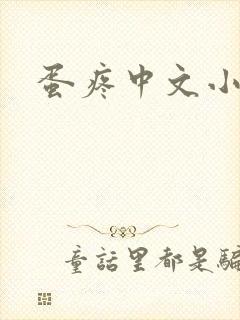 蛋疼中文小
童話里都是騙